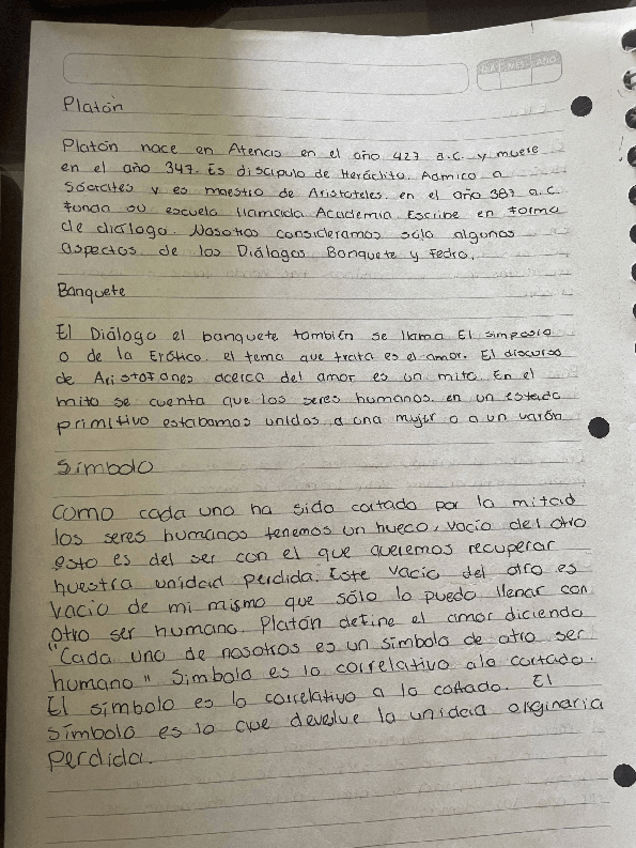 DIA MES AÑO
Platón
Platón nace en Atenas en el año 427 a.C. y muere
en el año 347. Es discipulo de Heráclito. Admico a
Sócrates y es maestro de Aristoteles. en el año 387 a.C.
funda su escuela llamada Academia. Escribe en forma
de diálogo. Nosotros consideramos solo algunos
aspectos de los Diálogos Banquete y Fedro.
Banquete
El Diálogo el banquete también se llama El simposio
o de la Erótica. el tema que trata es el amor. El discurso
de Aristofanes acerca del amor es un mito. En el
mito se cuenta que los seres humanos en un estado
primitivo estabamos unidos a una mujer o a un varón
Simbolo
Como cada uno ha sido cortado por la mitad
los seres humanos tenemos un hueco, vacio del otro
esto es del ser con el que queremos recuperar
nuestra unidad perdida. Este vacio del otro es
vacio de mi mismo que sólo lo puedo llenar con
otro ser humano. Platón define el amor diciendo
"Cada uno de nosotros es un símbolo de otro ser
humano" Simbolo es lo correlativo a lo cortado.
El símbolo es lo correlativo a lo cortado. El
símbolo es lo que develve la unidad originaria
perdida.